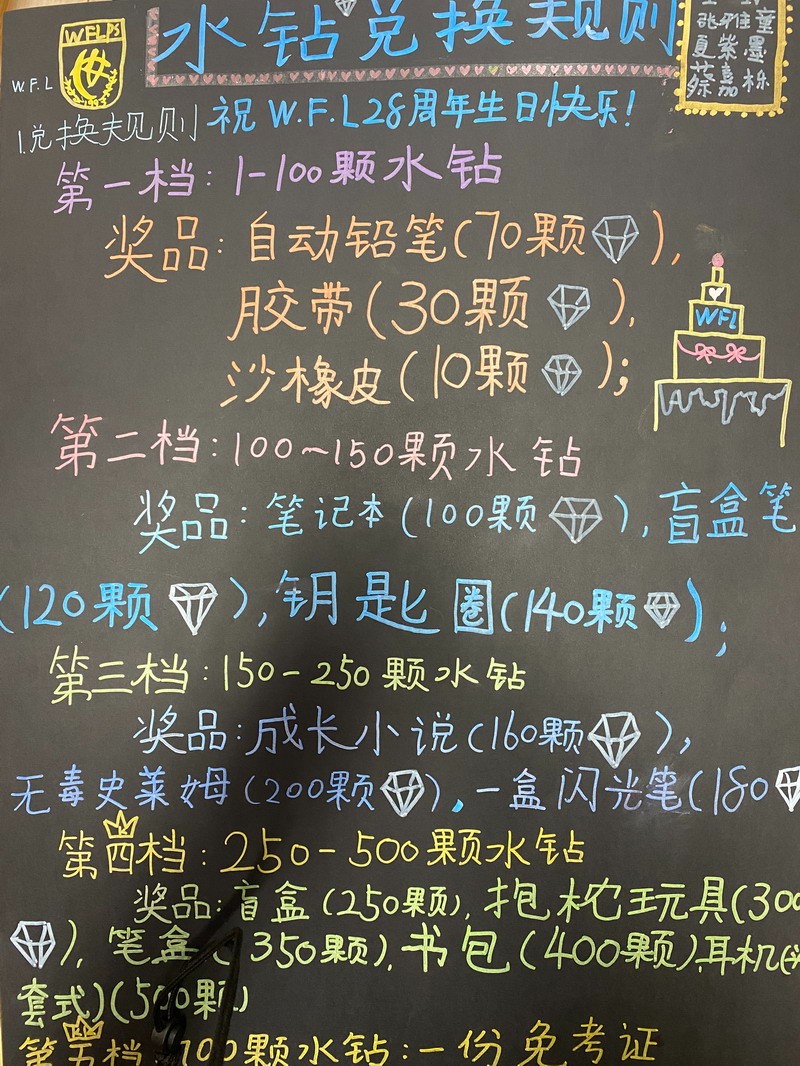 水钻兑换规则
张雅童
夏紫墨
嘉栎
WFLPS
W.F.L
1.兑换规则
祝W.F.L28周年生日快乐!
第一档:1-100颗水钻
奖品:自动铅笔(70颗),
胶带(30颗),
沙橡皮(10颗);
WFL
第二档:100~150颗水钻
奖品:笔记本(100颗),盲盒笔
(120颗),钥匙圈(140颗);
第三档:150-250颗水钻
奖品:成长小说(160颗),
无毒史莱姆(200颗),一盒闪光笔(180
第四档:250-500颗水钻
奖品:盲盒(250颗),抱枕玩具(300
),笔盒(350颗),书包(400颗),耳机(
套式)(500颗)
第五档 700颗水钻:一份免考证